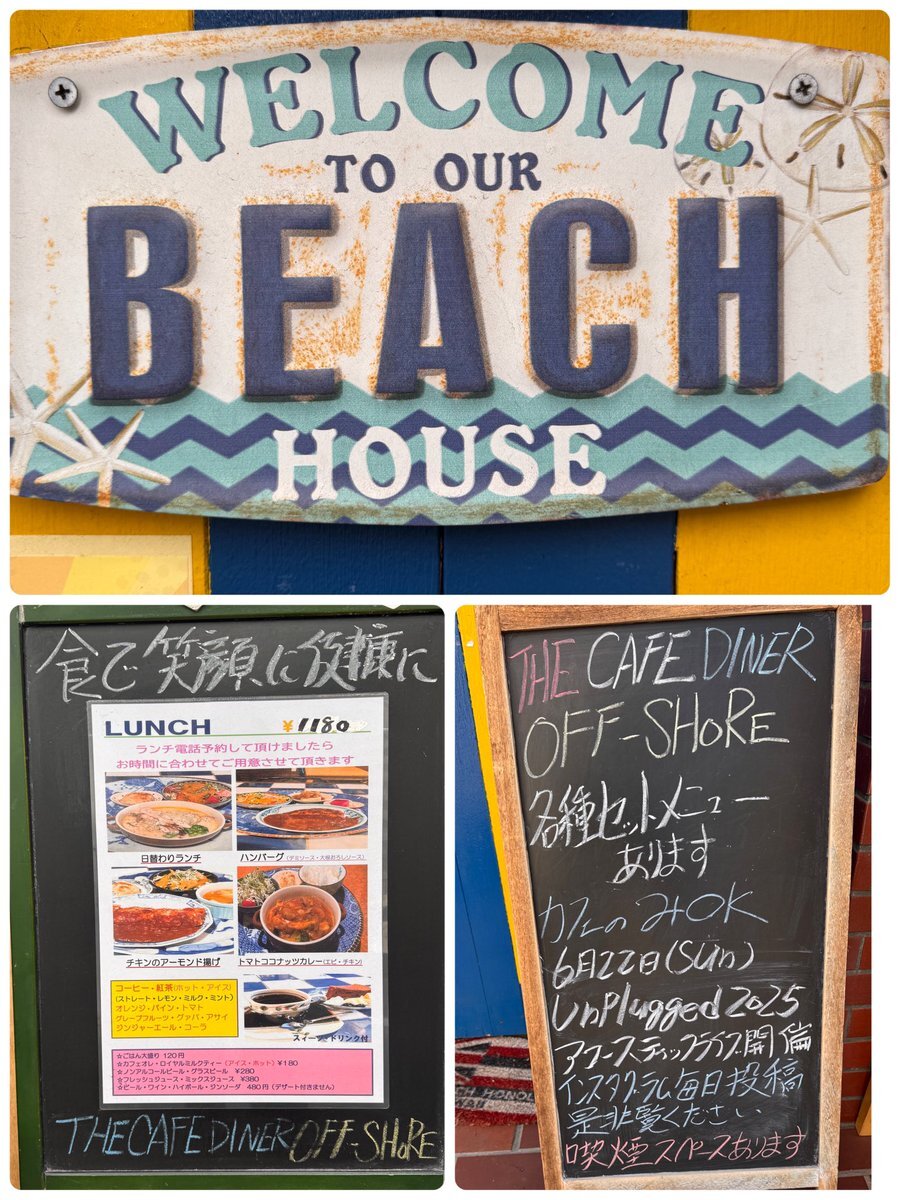 WELCOME
TO OUR
BEACH
HOUSE
食で笑顔に健康に
LUNCH ¥1180
ランチ電話予約して頂けましたら
お時間に合わせてご用意させて頂きます
日替わりランチ
ハンバーグ(デミソース・大根おろしソース)
チキンのアーモンド揚げ
トマトココナッツカレー(エビ・チキン)
コーヒー・紅茶(ホット・アイス)
(ストレート・レモン・ミルク・ミント)
オレンジ・パイン・トマト
グレープフルーツ・グァバ・アサイ
ジンジャーエール・コーラ
スイーツ・ドリンク付
☆ごはん大盛り 120円
☆カフェオレ・ロイヤルミルクティー(アイス・ホット)¥180
☆ノンアルコールビール・グラスビール ¥280
☆フレッシュジュース・ミックスジュース ¥380
☆ビール・ワイン・ハイボール・ジンソーダ 480円(デザート付きません)
THE CAFE DINER OFF-SHORE
THE CAFE DINER
OFF-SHORE
各種セットメニュー
あります
カフェのみOK
6月22日(Sun)
Unplugged 2025
アコースティックライブ開催
インスタグラム毎日投稿
是非覧ください
喫煙スペースあります